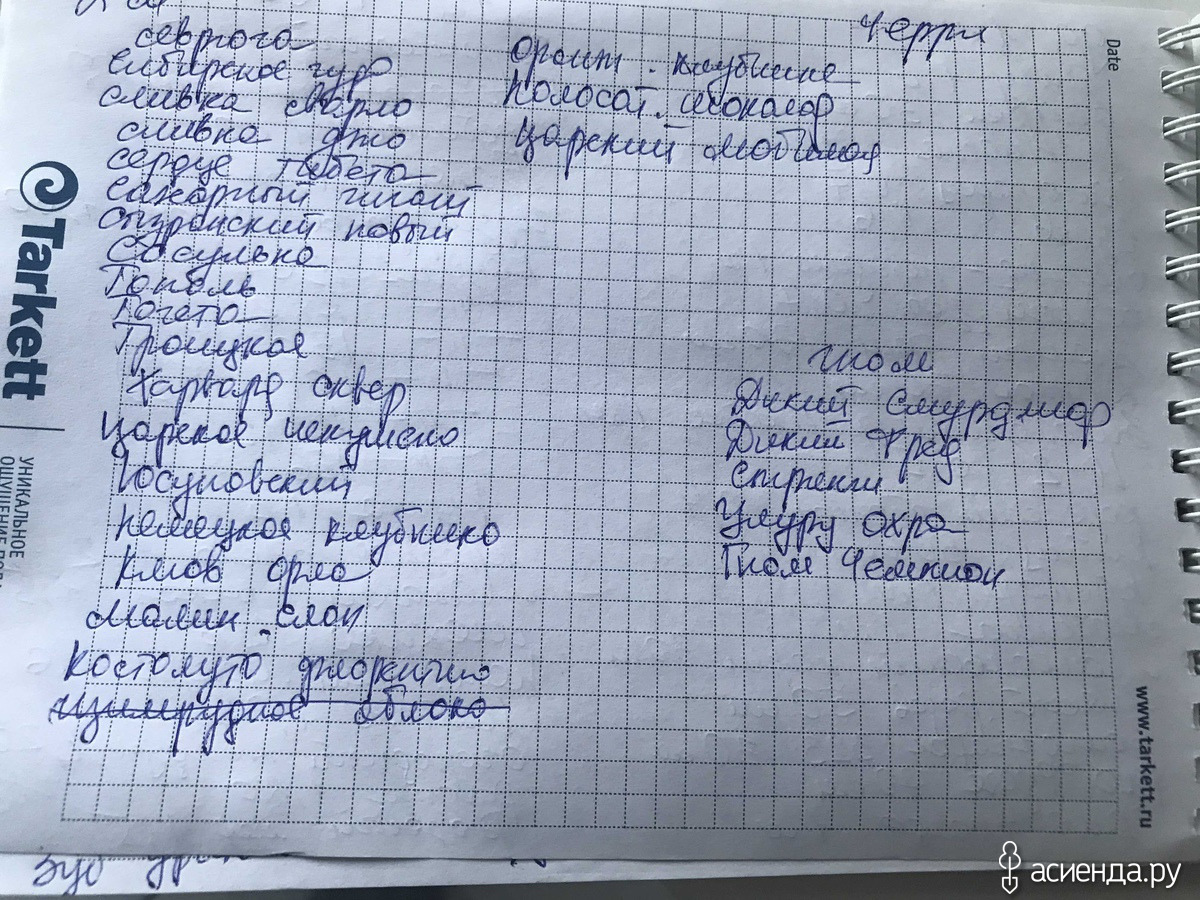 Черри
севрюга
сибирское чудо
сливка сварло
сливка джо
сердце тибета
сахарный гигант
сызранский новый
Сосулька
Тополь
Тогета
Троицкое
Харвард сквер
Царское искушено
Юсуповский
Немецкая клубнико
Клюв орла
Малин. слон
Костолуто джоркитио
изумрудное яблоко
Оранж. клубнике
Полосат. шоколад
Царский любимая
гном
Дикий Смурдмиф
Дикий Фред
Стрелки
Улуру охра
Гном Чемпион
Зуб
Date
Tarkett
УНИКАЛЬНОЕ
www.tarkett.ru
асиенда.ру